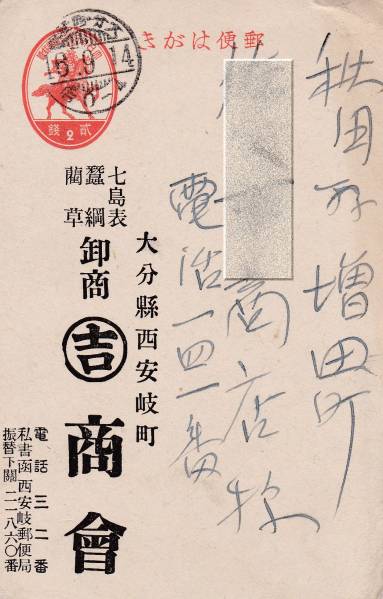 郵便はがき
貳銭
2
16.9.14
秋田縣増田町
商店様
電話一四一番
大分縣西安岐町
七島表
蠶網
藺草
卸商
吉
商會
電話三二番
私書函西安岐郵便局
振替下關二一八六〇番